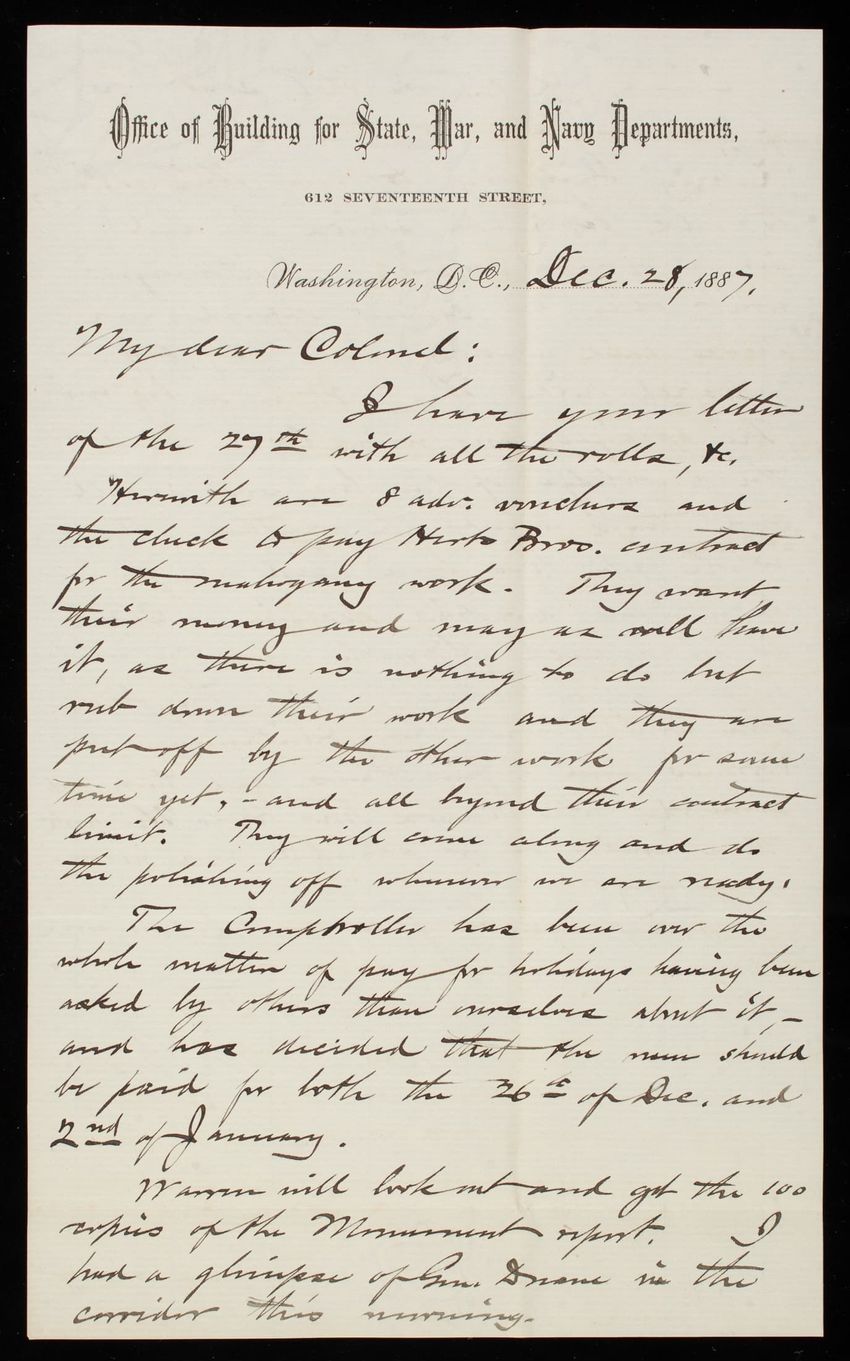 Office of Building for State, War, and Navy Departments,
612 SEVENTEENTH STREET,
Washington, D.C., Dec. 28, 1887.
My dear Colonel:
I have your letter
of the 27th with all the rolls, &c.
Herewith are 8 adv. vouchers and
the check to pay Herts Bros. contract
for the mahogany work. They want
their money and may as well have
it, as there is nothing to do but
rub down their work and they are
put off by the other work for some
time yet, - and all beyond their contract
limit. They will come along and do
the polishing off whenever we are ready.
The Comptroller has been over the
whole matter of pay for holidays having been
asked by others than ourselves about it, -
and has decided that the men should
be paid for both the 26th of Dec. and
2nd of January.
Warren will look out and get the 100
copies of the Monument report. I
had a glimpse of Gen. Duane in the
corridor this morning.